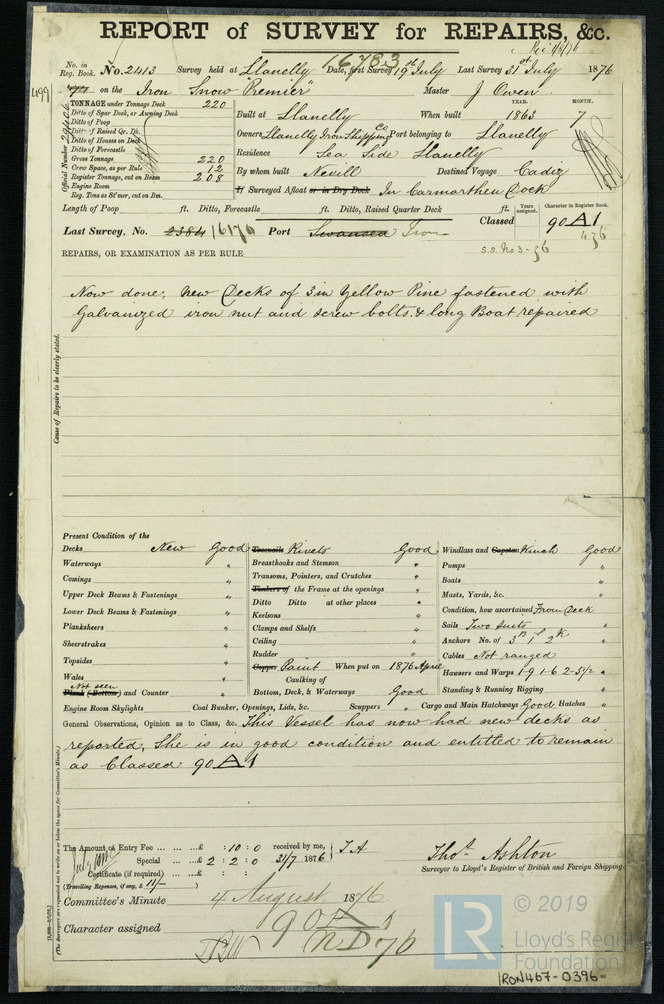 REPORT of SURVEY for REPAIRS, &c.
16783
No. in Reg. Book. No. 2413 Survey held at Llanelly Date, first Survey 19th July Last Survey 31st July 1876
499
on the Iron Snow "Premier" Master J Owen
TONNAGE under Tonnage Deck 220
Ditto of Spar Deck, or Awning Deck
Ditto of Poop
Ditto of Raised Qr. Dk.
Ditto of Houses on Deck
Ditto of Forecastle
Gross Tonnage 220
Crew Space, as per Rule 12
Register Tonnage, cut on Beam 208
Engine Room
Reg. Tons as St'mer, cut on Bm.
Official Number
Built at Llanelly When built YEAR. 1863 MONTH. 7
Owners Llanelly Iron Shipping Co Port belonging to Llanelly
Residence Sea Side Llanelly
By whom built Nevill Destined Voyage Cadiz
If Surveyed Afloat or in Dry Dock In Carmarthen Dock
Length of Poop ft. Ditto, Forecastle ft. Ditto, Raised Quarter Deck ft.
Classed Years assigned. Character in Register Book. 90 A 1
4,76
Last Survey, No. 2384 16176 Port Swansea Iron
S.S. No 3-76
REPAIRS, OR EXAMINATION AS PER RULE
Now done; New Decks of 3 in Yellow Pine fastened with
Galvanized iron nut and screw bolts. & long Boat repaired
Cause of Repairs to be clearly stated.
Present Condition of the
Decks New Good
Waterways "
Comings "
Upper Deck Beams & Fastenings "
Lower Deck Beams & Fastenings "
Planksheers "
Sheerstrakes "
Topsides "
Wales "
Not seen
Plank (Bottom) and Counter "
Engine Room Skylights
Treenails Rivets Good
Breasthooks and Stemson "
Transoms, Pointers, and Crutches "
Timbers of the Frame at the openings "
Ditto Ditto at other places "
Keelsons "
Clamps and Shelfs "
Ceiling "
Rudder "
Copper Paint When put on 1876 April
Caulking of
Bottom, Deck, & Waterways Good
Coal Bunker, Openings, Lids, &c. Scuppers "
Windlass and Capstan Winch Good
Pumps "
Boats "
Masts, Yards, &c. "
Condition, how ascertained From Deck
Sails Two suits "
Anchors No. of 3B 1st 2K "
Cables Not ranged
Hawsers and Warps 1-9 1-6 2-5½ "
Standing & Running Rigging "
Cargo and Main Hatchways Good Hatches "
General Observations, Opinion as to Class, &c. This Vessel has now had new decks as
reported, She is in good condition and entitled to remain
as Classed 90 A 1
The Amount of Entry Fee ... ... ...£ : 10 : 0 received by me,
Special ... ...£ 2 : 2 : 0 31/7 1876
Certificate (if required) ... : :
(Travelling Expenses, if any, £ 11/- )
Thos. Ashton
Surveyor to Lloyd's Register of British and Foreign Shipping.
Committee's Minute 4 August 1876
Character assigned 90 A 1
ND 76
(The Surveyors are requested not to write on or below the space for Committee's Minute.)
LR
© 2019
Lloyd's Register
Foundation
IRON467-0396